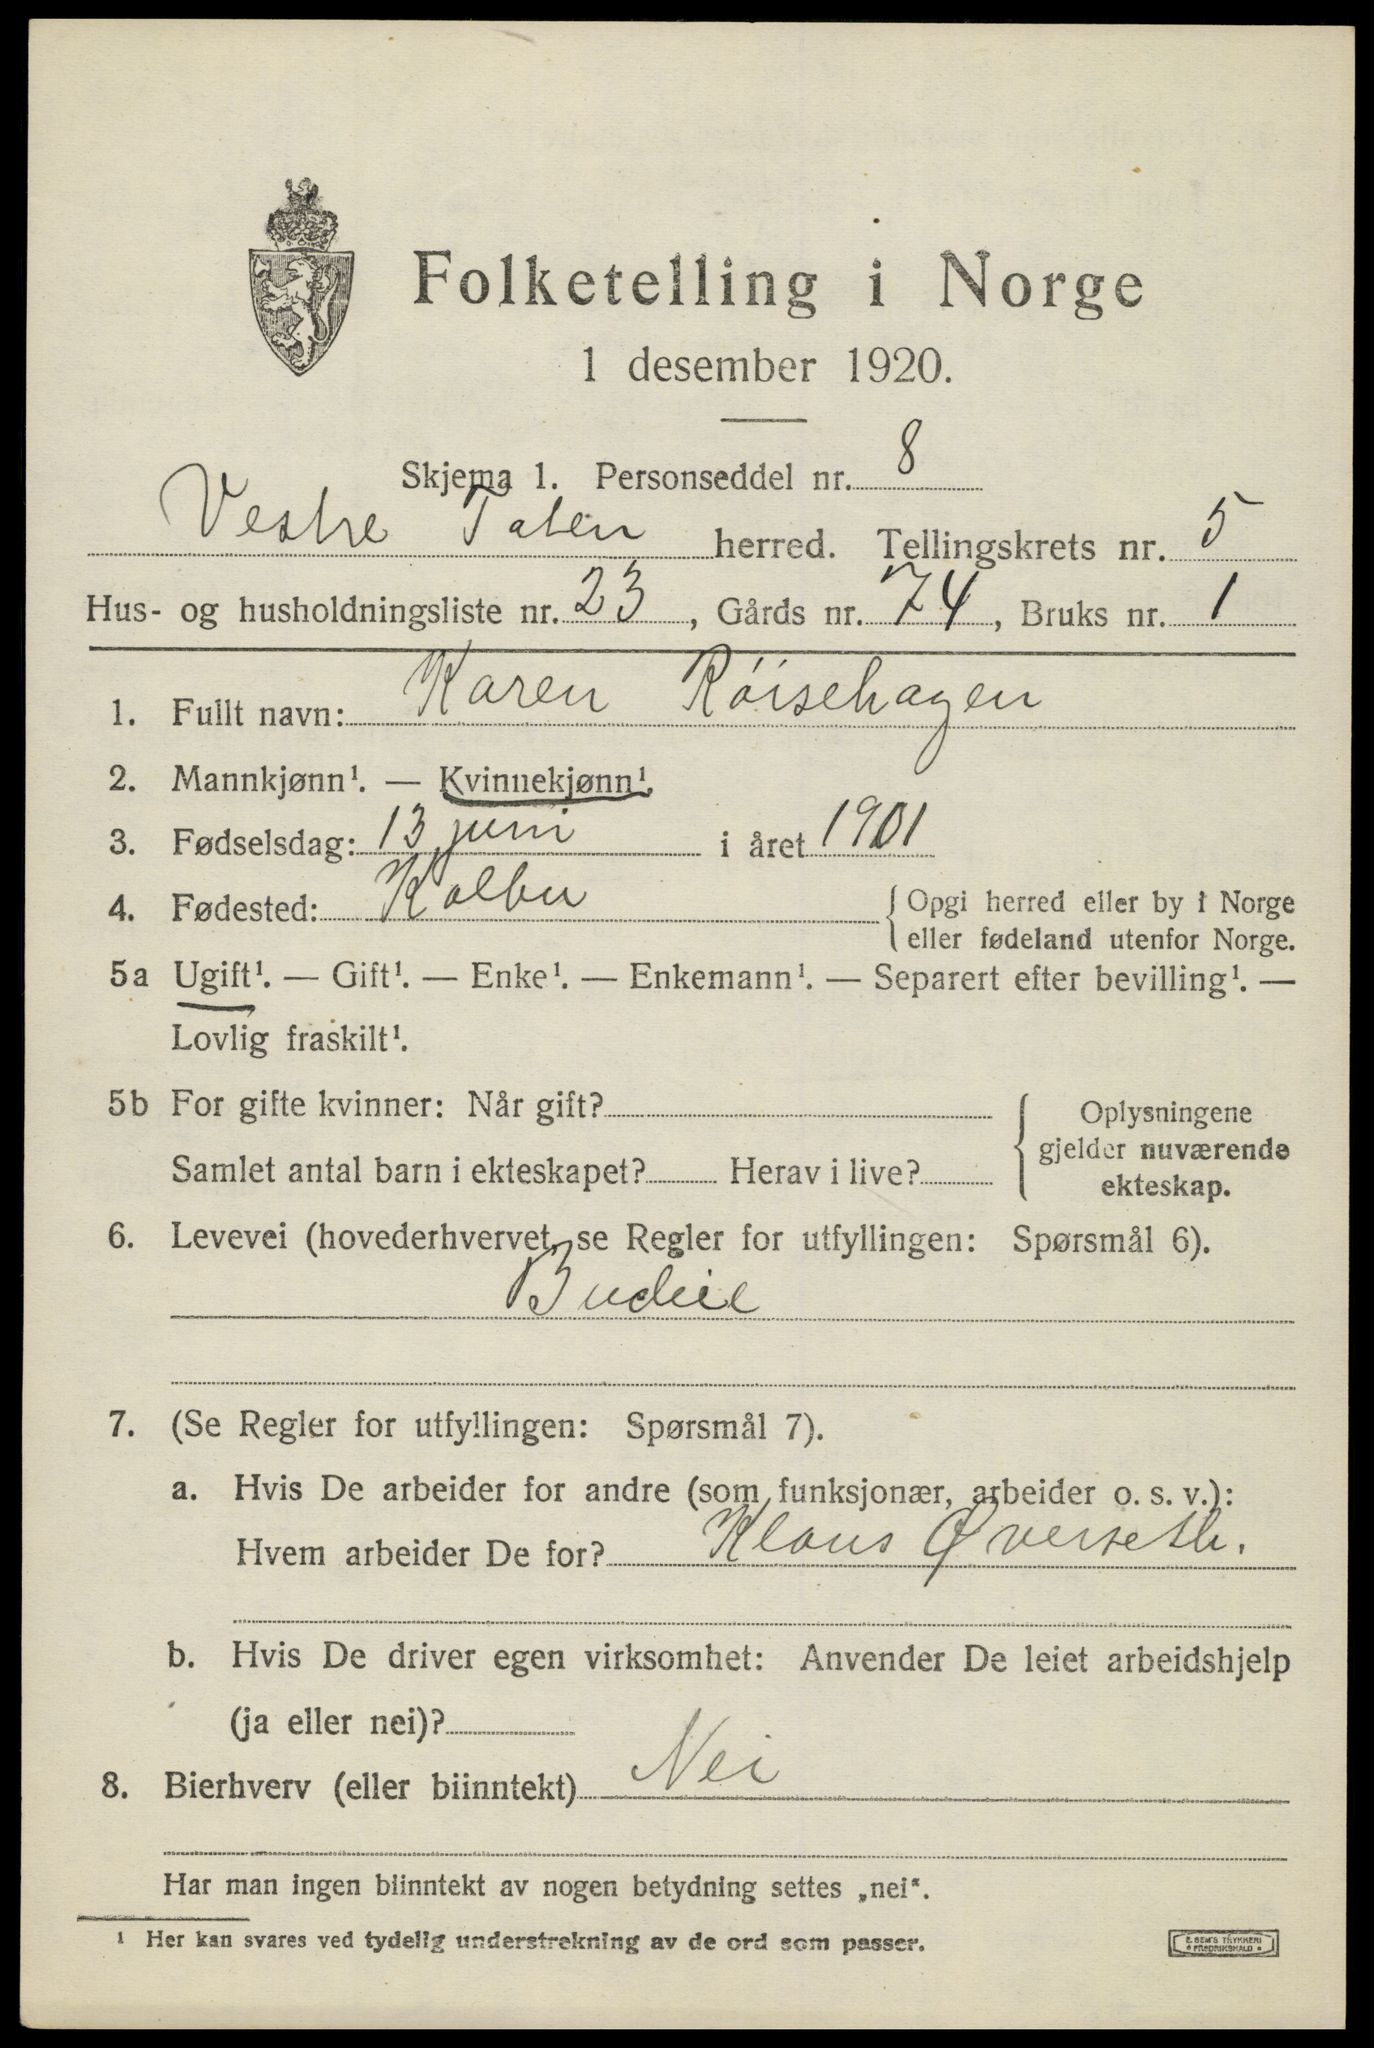 Folketelling i Norge
1 desember 1920.
Skjema 1. Personseddel nr. 8
Vestre Toten herred. Tellingskrets nr. 5
Hus- og husholdningsliste nr. 23, Gårds nr. 74, Bruks nr. 1
1. Fullt navn: Karen Röisehagen
2. Mannkjønn¹. — Kvinnekjønn¹.
3. Fødselsdag: 13 juni i året 1901
4. Fødested: Kolbu
{ Opgi herred eller by i Norge
eller fødeland utenfor Norge.
5a Ugift¹. — Gift¹. — Enke¹. — Enkemann¹. — Separert efter bevilling¹. —
Lovlig fraskilt¹.
5b For gifte kvinner: Når gift?
Samlet antal barn i ekteskapet? Herav i live?
{ Oplysningene
gjelder nuværende
ekteskap.
6. Levevei (hovederhvervet, se Regler for utfyllingen: Spørsmål 6).
Budeie
7. (Se Regler for utfyllingen: Spørsmål 7).
a. Hvis De arbeider for andre (som funksjonær, arbeider o. s. v.):
Hvem arbeider De for? Klaus Øverseth.
b. Hvis De driver egen virksomhet: Anvender De leiet arbeidshjelp
(ja eller nei)?
8. Bierhverv (eller biinntekt) Nei
Har man ingen biinntekt av nogen betydning settes „nei“.
¹ Her kan svares ved tydelig understrekning av de ord som passer.
E. SEM'S TRYKKERI
FREDRIKSHALD